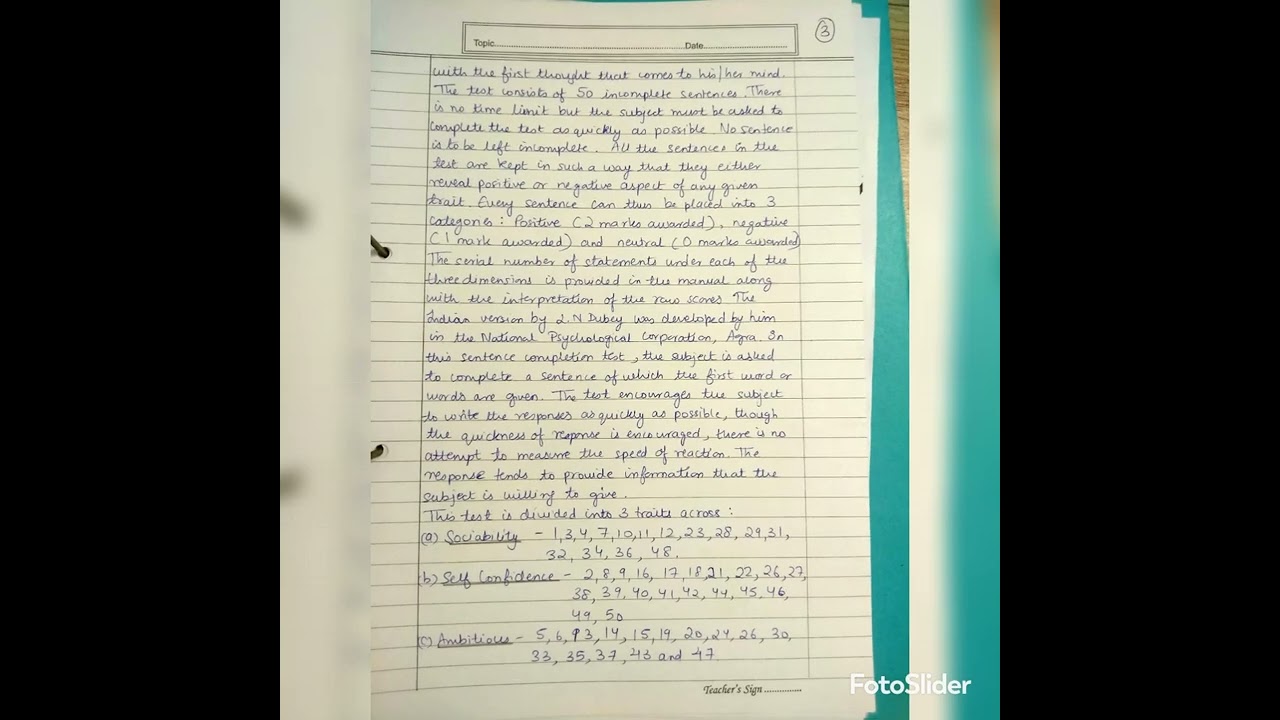 3
Topic.......................................................Date...........................
with the first thought that comes to his/her mind.
The test consists of 50 incomplete sentences. There
is no time limit but the subject must be asked to
complete the test as quickly as possible. No sentence
is to be left incomplete. All the sentences in the
test are kept in such a way that they either
reveal positive or negative aspect of any given
trait. Every sentence can thus be placed into 3
categories: Positive (2 marks awarded), negative
(1 mark awarded) and neutral (0 marks awarded)
The serial number of statements under each of the
three dimensions is provided in the manual along
with the interpretation of the raw scores. The
Indian version by L.N Dubey was developed by him
in the National Psychological Corporation, Agra. In
this sentence completion test, the subject is asked
to complete a sentence of which the first word or
words are given. The test encourages the subject
to write the responses as quickly as possible, though
the quickness of response is encouraged, there is no
attempt to measure the speed of reaction. The
response tends to provide information that the
subject is willing to give.
This test is divided into 3 traits across:
(a) Sociability - 1,3,4,7,10,11,12,23,28,29,31,
32, 34, 36, 48.
(b) Self Confidence - 2,8,9,16, 17,18,21, 22, 26, 27,
38, 39, 40, 41, 42, 44, 45, 46,
49, 50
(c) Ambitious - 5,6,13,14,15,19, 20,24, 26, 30,
33, 35, 37, 43 and 47.
Teacher's Sign ..............
FotoSlider